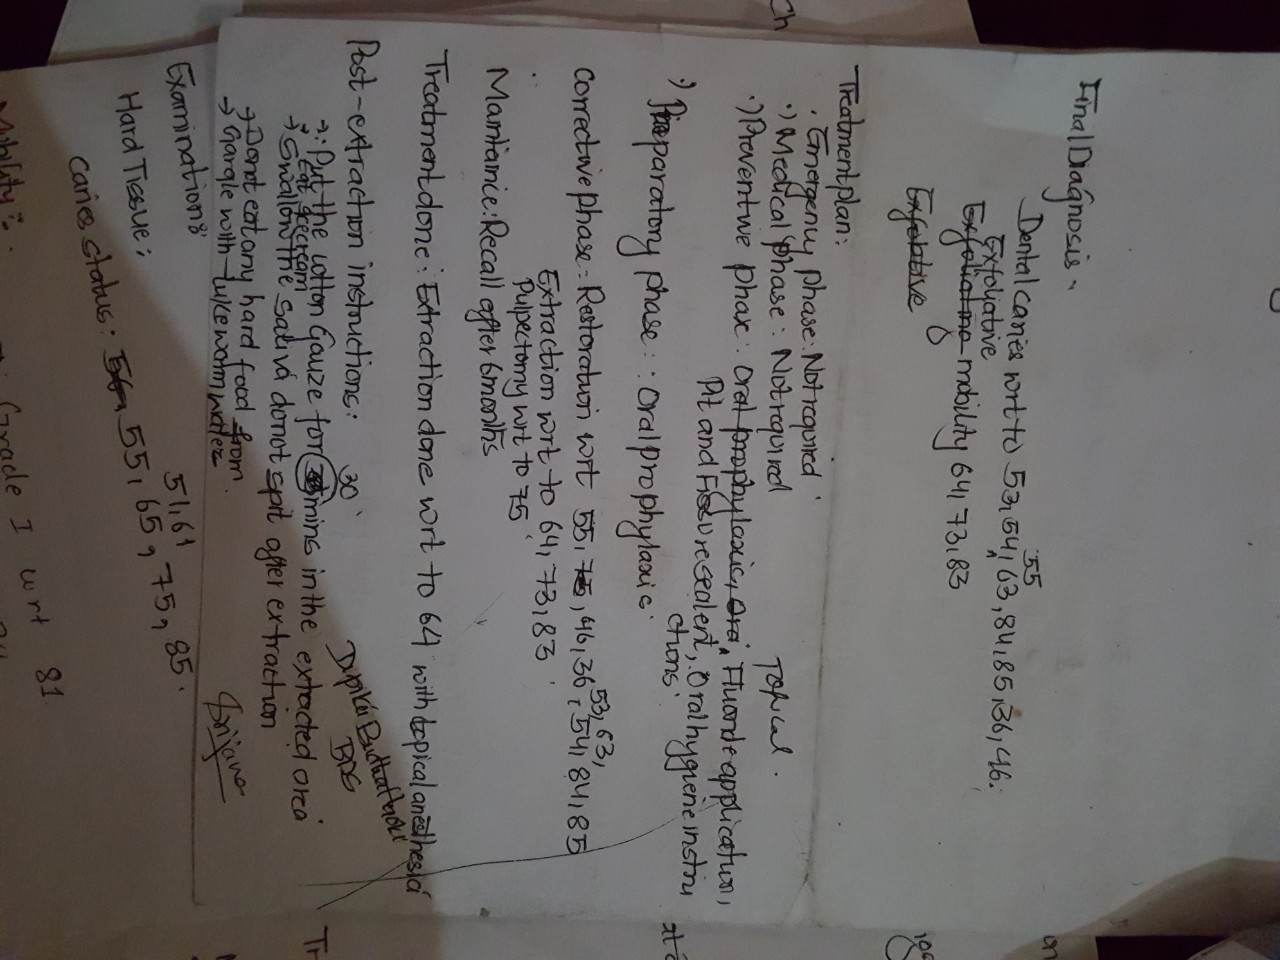 Final Diagnosis
Dental caries wrt to 53, 54, 55, 63, 84, 85, 36, 46.
Exfoliative
Exfoliating mobility 64, 73, 83
Treatment plan:
Emergency phase: Not required
Medical phase: Not required
Topical
Preventive phase: Oral prophylaxis, Ora Fluoride application,
Pit and Fissure sealent, Oral hygiene instru
ctions.
Preparatory phase: Oral prophylaxis.
53, 63,
Corrective phase: Restoration wrt 55, 75, 46, 36, 54, 84, 85
Extraction wrt to 64, 73, 83
Pulpectomy wrt to 75
Maintainice: Recall after 6 months
Treatment done: Extraction done wrt to 64 with topical anesthesia
BDS
Post-extraction instructions:
30
→ Put the cotton Gauze for mins in the extracted area
→ Eat icecream
→ Swallow the saliva donot spit after extraction
→ Donot eat any hard food from
→ Gargle with luke worm water
Srijana
Examination:
Hard Tissue:
51, 61
caries status: 55, 65, 75, 85.
Mobility:
Grade I wrt 81